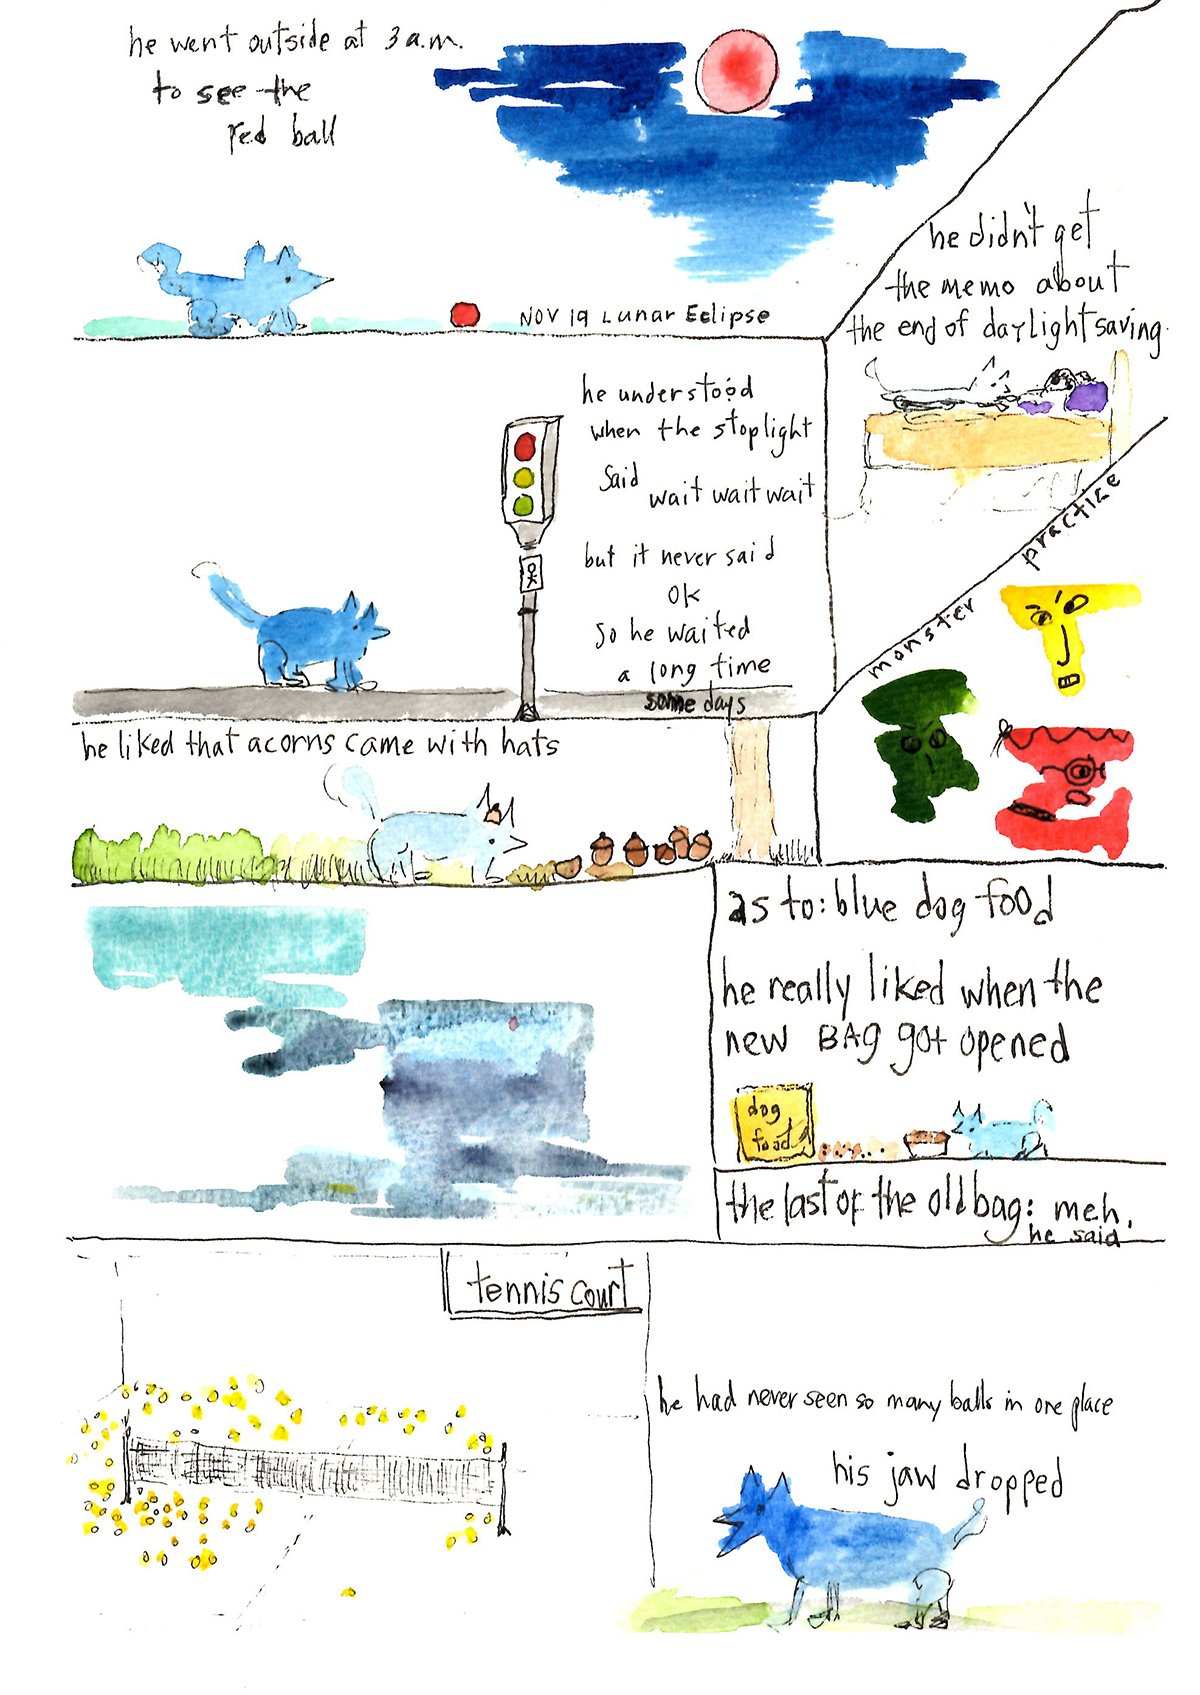 he went outside at 3 a.m.
to see the
red ball
NOV 19 Lunar Eclipse
he didn't get
the memo about
the end of daylight saving.
he understood
when the stoplight
said wait wait wait
but it never said
OK
so he waited
a long time
some days
monster practice
he liked that acorns came with hats
as to: blue dog food
he really liked when the
new BAG got opened
dog
food
the last of the old bag: meh.
he said
tennis court
he had never seen so many balls in one place
his jaw dropped